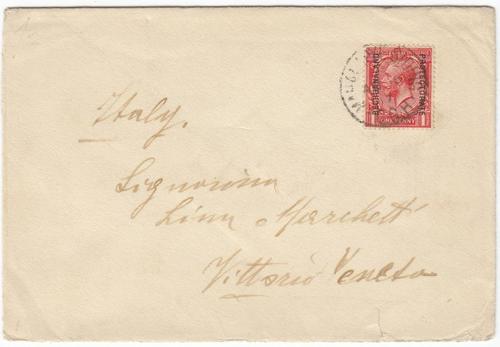 BECHUANALAND PROTECTORATE
ONE PENNY 1
Italy.
Signorina
Lina Marchetti
Vittorio Veneto